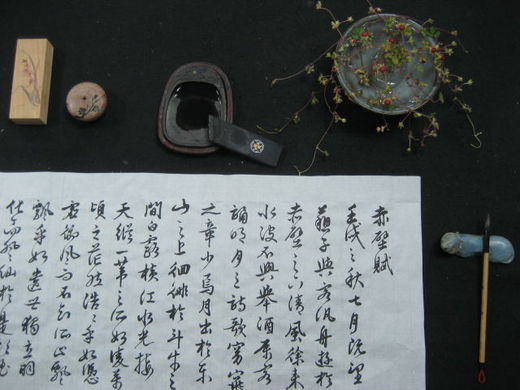 赤壁賦
壬戌之秋七月既望
蘇子與客汎舟遊於
赤壁之下清風徐來
水波不興舉酒屬客
誦明月之詩歌窈窕
之章少焉月出於東
山之上徘徊於斗牛之
間白露橫江水光接
天縱一葦之所如凌萬
頃之茫然浩浩乎如憑
虛御風而不知其所止飄
飄乎如遺世獨立羽
化而登仙於是飲